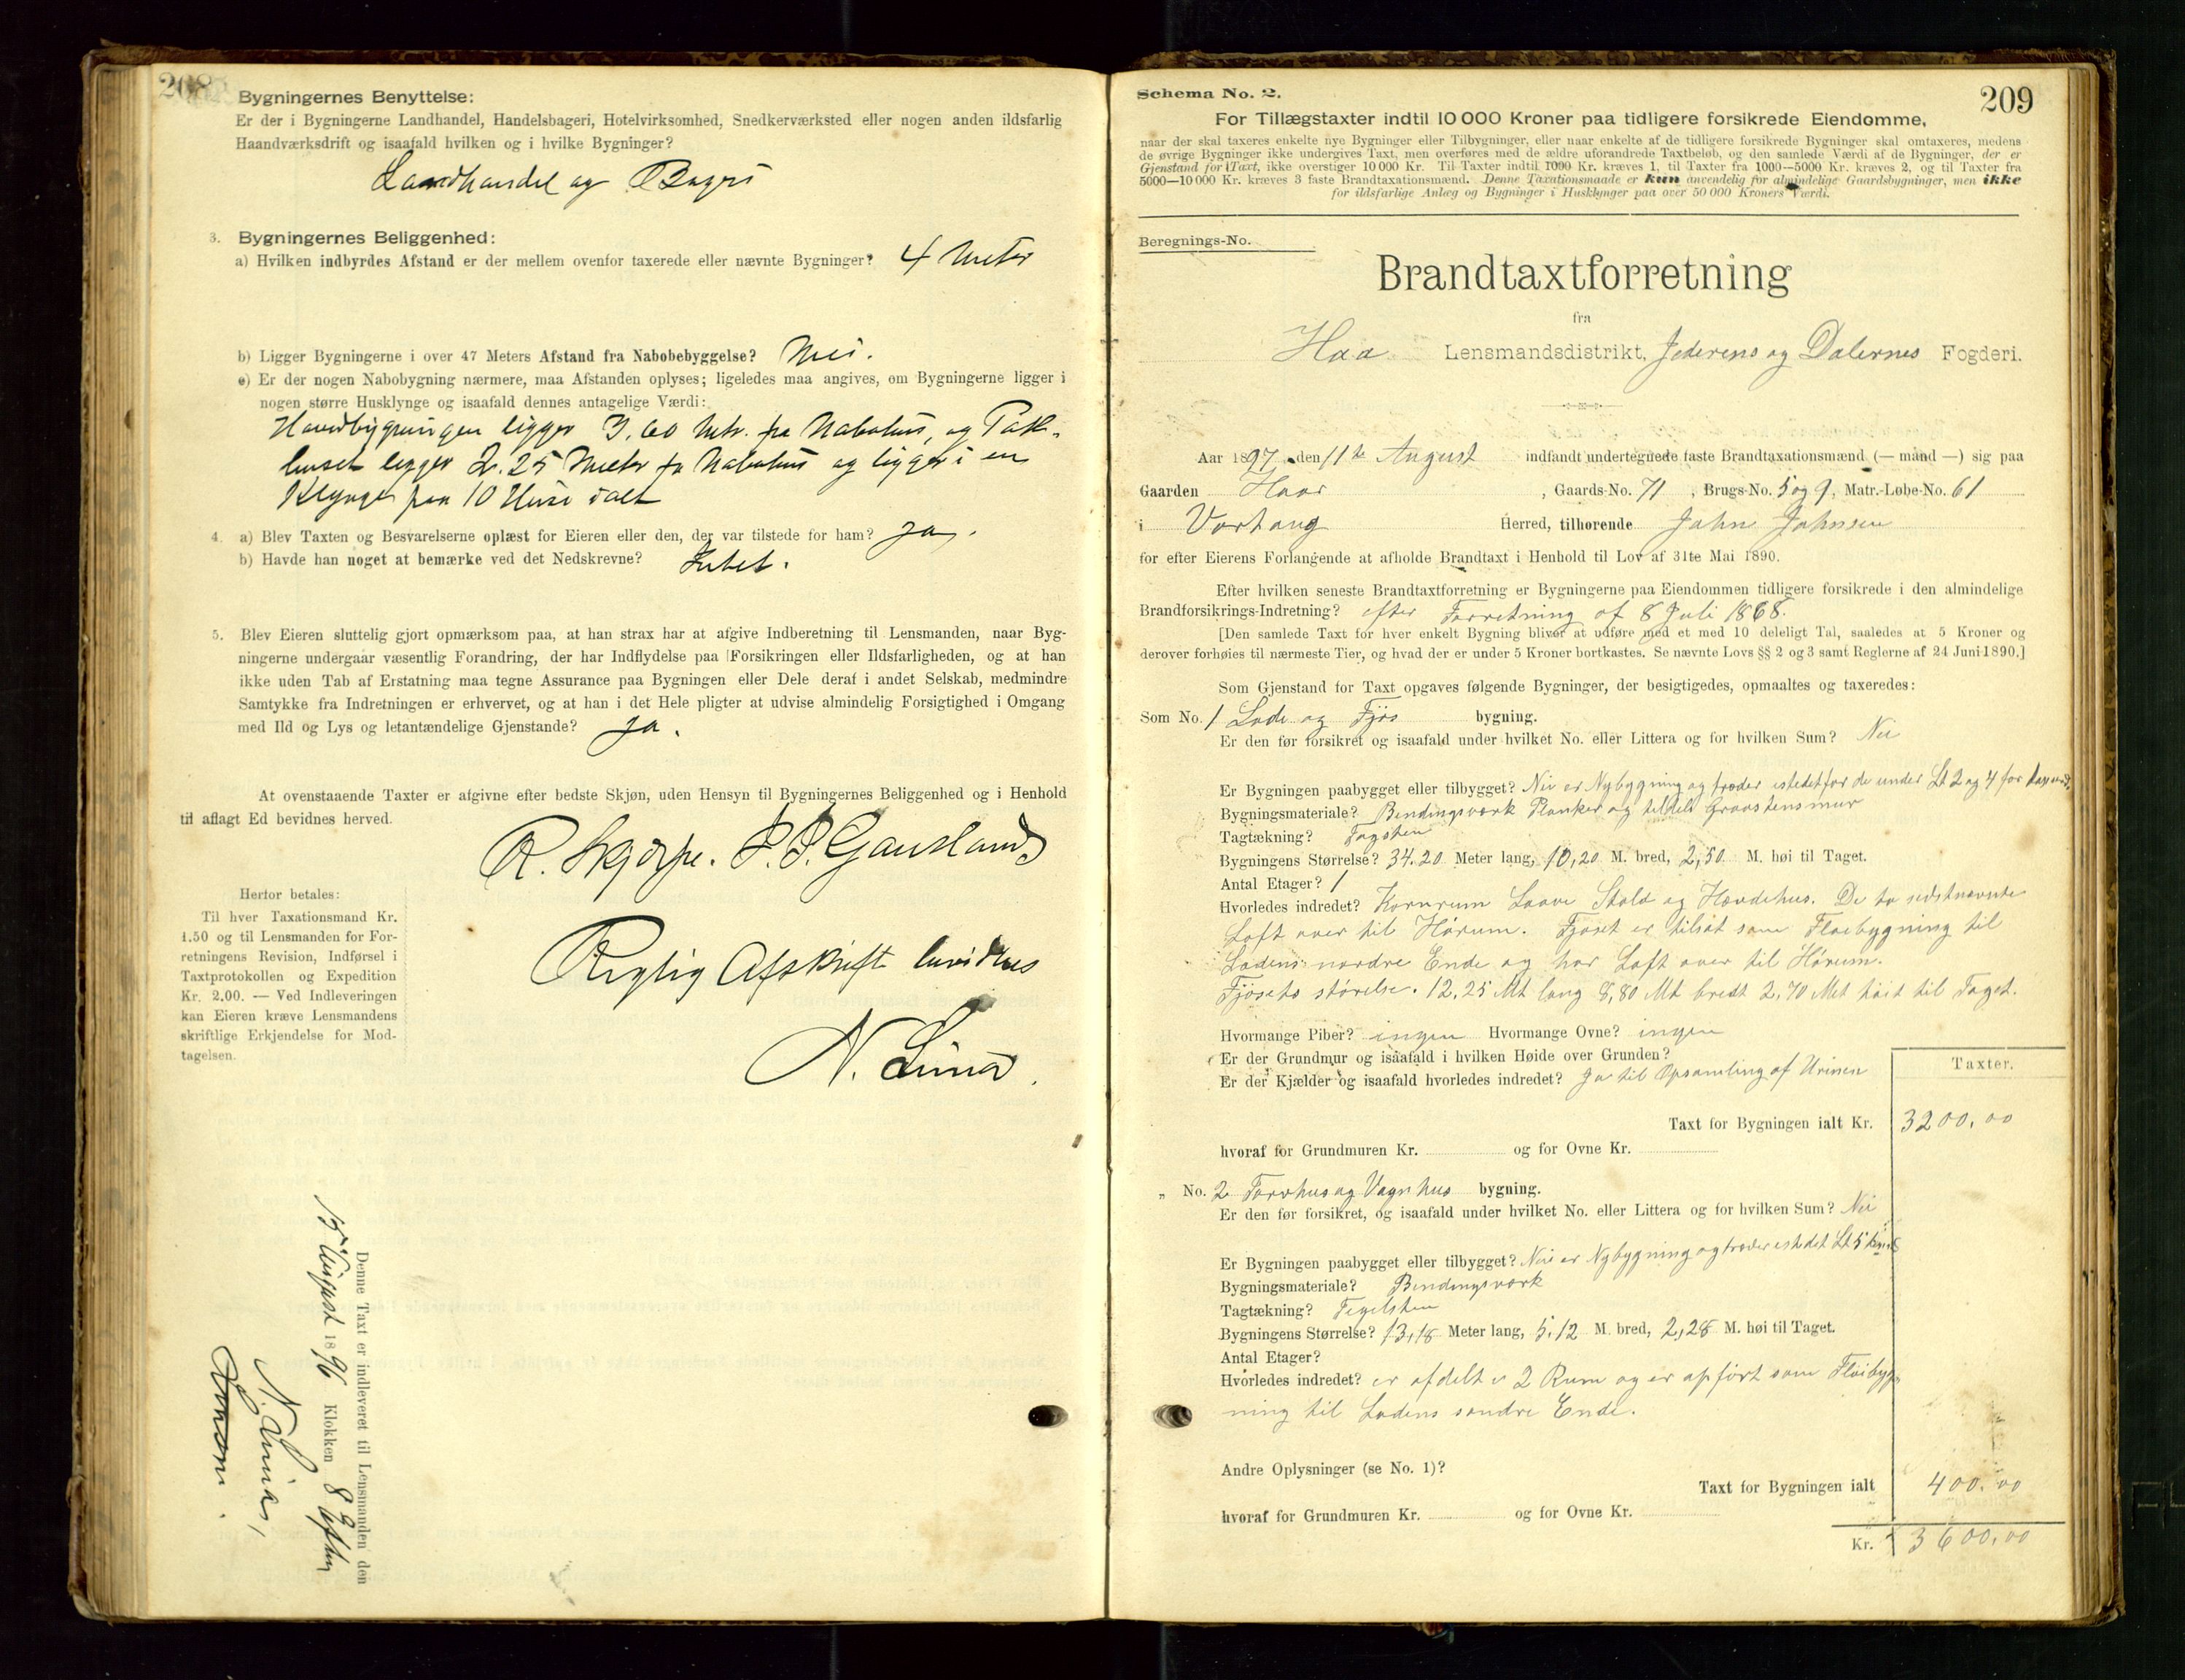 208
Bygningernes Benyttelse:
Er der i Bygningerne Landhandel, Handelsbageri, Hotelvirksomhed, Snedkerværksted eller nogen anden ildsfarlig
Haandværksdrift og isaafald hvilken og i hvilke Bygninger?
Landhandel og Bageri
3. Bygningernes Beliggenhed:
a) Hvilken indbyrdes Afstand er der mellem ovenfor taxerede eller nævnte Bygninger? 4 Meter
b) Ligger Bygningerne i over 47 Meters Afstand fra Nabobebyggelse? Nei.
c) Er der nogen Nabobygning nærmere, maa Afstanden oplyses; ligeledes maa angives, om Bygningerne ligger i
nogen større Husklynge og isaafald dennes antagelige Værdi:
Hovedbygningen ligger 3.60 Mtr. fra Nabohus, og Pak-
huset ligger 2.25 Meter fra Nabohus og ligger i en
Klynge paa 10 Huse ialt
4. a) Blev Taxten og Besvarelserne oplæst for Eieren eller den, der var tilstede for ham? Ja.
b) Havde han noget at bemærke ved det Nedskrevne? Intet.
5. Blev Eieren sluttelig gjort opmærksom paa, at han strax har at afgive Indberetning til Lensmanden, naar Byg-
ningerne undergaar væsentlig Forandring, der har Indflydelse paa Forsikringen eller Ildsfarligheden, og at han
ikke uden Tab af Erstatning maa tegne Assurance paa Bygningen eller Dele deraf i andet Selskab, medmindre
Samtykke fra Indretningen er erhvervet, og at han i det Hele pligter at udvise almindelig Forsigtighed i Omgang
med Ild og Lys og letantændelige Gjenstande? Ja.
At ovenstaaende Taxter er afgivne efter bedste Skjøn, uden Hensyn til Bygningernes Beliggenhed og i Henhold
til aflagt Ed bevidnes herved.
R. Skjorpe. P. P. Gausland
Rigtig Afskrift bevidnes
N. Lima.
Herfor betales:
Til hver Taxationsmand Kr.
1.50 og til Lensmanden for For-
retningens Revision, Indførsel i
Taxtprotokollen og Expedition
Kr. 2.00. — Ved Indleveringen
kan Eieren kræve Lensmandens
skriftlige Erkjendelse for Mod-
tagelsen.
Denne Taxt er indleveret til Lensmanden den
15 August 1896 Klokken 8 Efter
N. Lima,
Schema No. 2.
209
For Tillægstaxter indtil 10 000 Kroner paa tidligere forsikrede Eiendomme,
naar der skal taxeres enkelte nye Bygninger eller Tilbygninger, eller naar enkelte af de tidligere forsikrede Bygninger skal omtaxeres, medens
de øvrige Bygninger ikke undergives Taxt, men overføres med de ældre uforandrede Taxtbeløb, og den samlede Værdi af de Bygninger, der er
Gjenstand for Taxt, ikke overstiger 10 000 Kr. Til Taxter indtil 1000 Kr. kræves 1, til Taxter fra 1000—5000 Kr. kræves 2, og til Taxter fra
5000—10 000 Kr. kræves 3 faste Brandtaxationsmænd. Denne Taxationsmaade er kun anvendelig for almindelige Gaardsbygninger, men ikke
for ildsfarlige Anlæg og Bygninger i Husklynger paa over 50 000 Kroners Værdi.
Beregnings-No.
Brandtaxtforretning
fra
Haa Lensmandsdistrikt, Jederens og Dalernes Fogderi.
Aar 1897 den 11te August indfandt undertegnede faste Brandtaxationsmænd (— mand —) sig paa
Gaarden Haar, Gaards-No. 71, Brugs-No. 5 og 9, Matr.-Løbe-No. 61
i Varhaug Herred, tilhørende John Johnsen
for efter Eierens Forlangende at afholde Brandtaxt i Henhold til Lov af 31te Mai 1890.
Efter hvilken seneste Brandtaxtforretning er Bygningerne paa Eiendommen tidligere forsikrede i den almindelige
Brandforsikrings-Indretning? efter Forretning af 8 Juli 1868.
[Den samlede Taxt for hver enkelt Bygning bliver at udføre med et med 10 deleligt Tal, saaledes at 5 Kroner og
derover forhøies til nærmeste Tier, og hvad der er under 5 Kroner bortkastes. Se nævnte Lovs §§ 2 og 3 samt Reglerne af 24 Juni 1890.]
Som Gjenstand for Taxt opgaves følgende Bygninger, der besigtigedes, opmaaltes og taxeredes:
Som No. 1 Lade og Fjøs bygning.
Er den før forsikret og isaafald under hvilket No. eller Littera og for hvilken Sum? Nei
Er Bygningen paabygget eller tilbygget? Nei er Nybygning og træder istedetfor de under Lt 2 og 4 før
Bygningsmateriale? Bindingsværk Planker og tildels Graastensmur
Tagtækning? Tagsten
Bygningens Størrelse? 34.20 Meter lang, 10,20 M. bred, 2,50 M. høi til Taget.
Antal Etager? 1
Hvorledes indredet? Kornrum Laave Stald og Hævdehus. De to sidstnævnte
Loft over til Hörum. Fjøset er tilsat som Fløibygning til
Ladens nordre Ende og har Loft over til Hörum.
Fjösets störelse. 12,25 Mt lang 8,80 Mt bredt 2,70 Met höit til Taget.
Hvormange Piber? ingen Hvormange Ovne? ingen
Er der Grundmur og isaafald i hvilken Høide over Grunden?
Er der Kjælder og isaafald hvorledes indredet? Ja til Opsamling af Urinen
Taxter.
Taxt for Bygningen ialt Kr. 3200,00
hvoraf for Grundmuren Kr. og for Ovne Kr.
" No. 2 Torvhus og Vognhus bygning.
Er den før forsikret, og isaafald under hvilket No. eller Littera og for hvilken Sum? Nei
Er Bygningen paabygget eller tilbygget? Nei er Nybygning og træder istedet Lt 5
Bygningsmateriale? Bindingsværk
Tagtækning? Tegelsten
Bygningens Størrelse? 13,18 Meter lang, 5.12 M. bred, 2,28 M. høi til Taget.
Antal Etager?
Hvorledes indredet? er afdelt i 2 Rum og er opfört som Flöibyg-
ning til Ladens søndre Ende.
Andre Oplysninger (se No. 1)?
Taxt for Bygningen ialt 400.00
hvoraf for Grundmuren Kr. og for Ovne Kr.
Kr. 3600,00